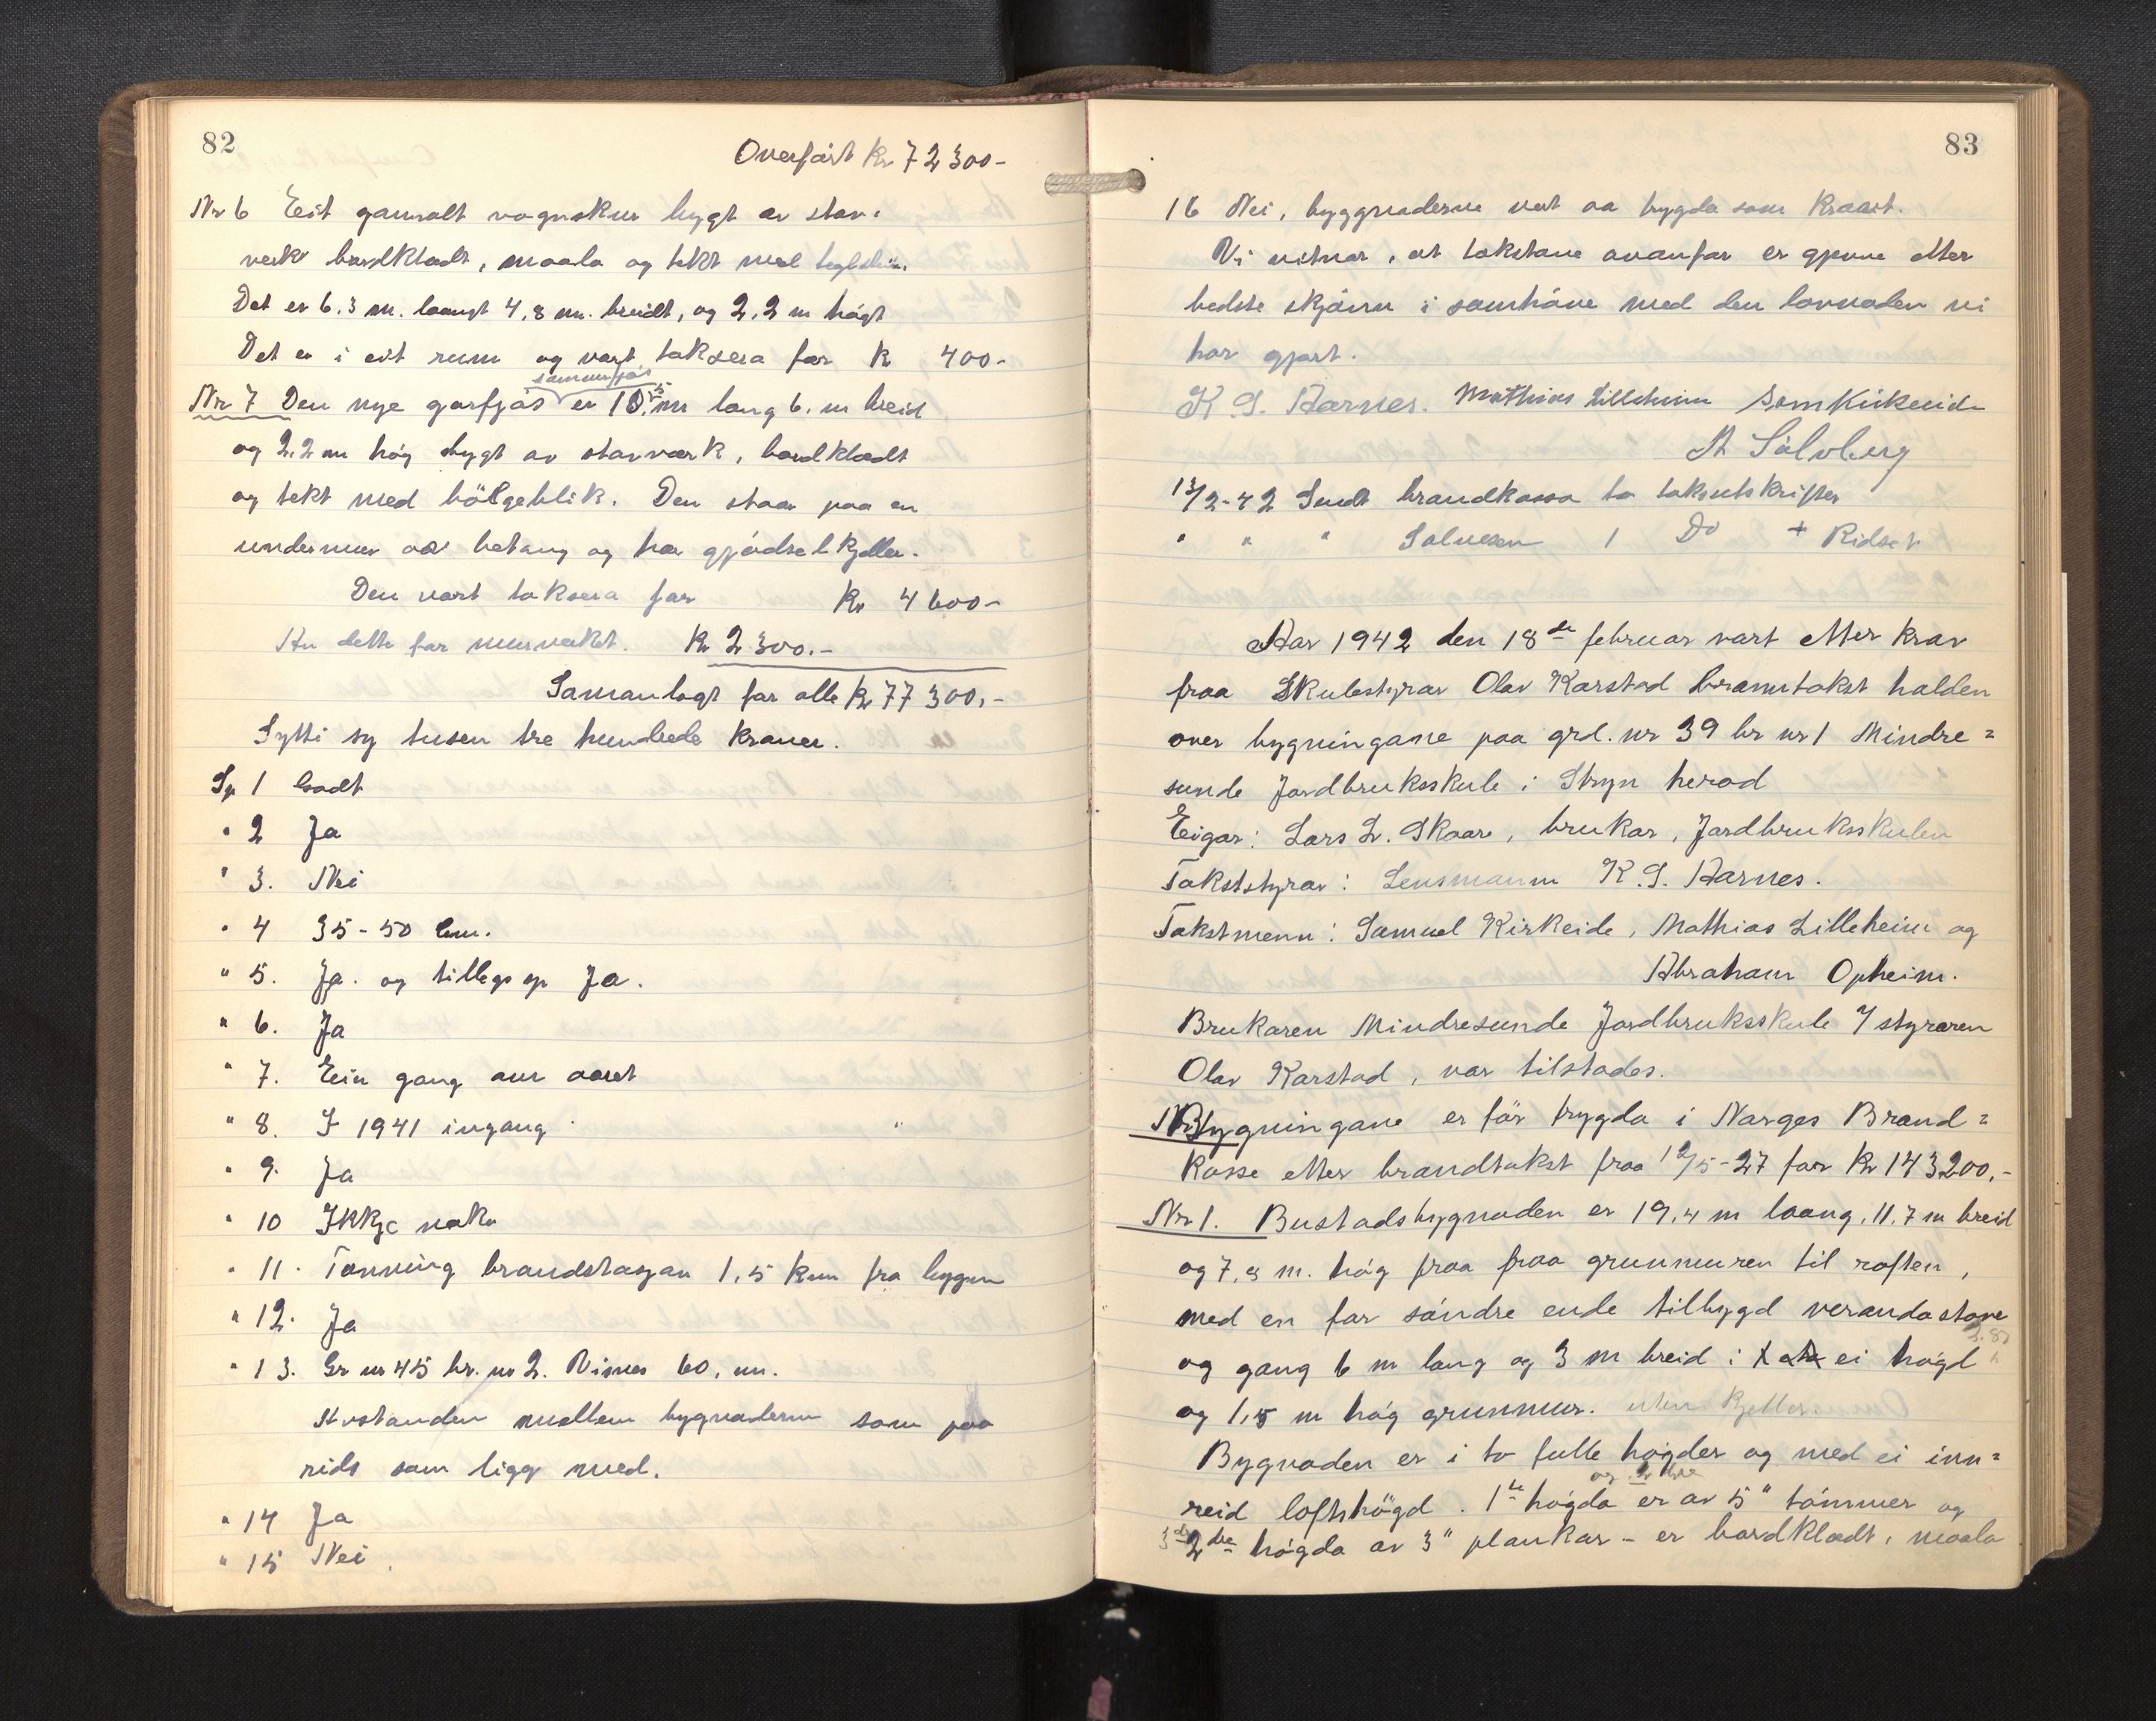 82
Overført Kr 72 300-
Nr 6 Eit gamalt vognskur bygt av stav-
verk bordklædt, maala og tekt med teglstein.
Det er 6,3 m. laangt 4,8 m. breidt, og 2,2 m høgt
Det er i eit rum og vart taksera for k 400-
sommerfjøs
Nr 7 Den nye garfjøs er 10,5 m lang 6. m breid
og 2,2 m høg bygt av stavverk, bordklædt
og tekt med bölgeblik. Den staar paa en
undermur av betong og har gjödselkjeller.
Den vart taksera for Kr 4600-
Av dette for murverket. Kr 2300.-
Samanlagt for alle kr 77 300,-
Sytti sy tusen tre hundrede kroner.
Sp 1 Godt
" 2 Ja
" 3. Nei
" 4 35-50 cm.
" 5. Ja. og tillegs sp Ja.
" 6. Ja
" 7. Ein gang um aaret
" 8. I 1941 ingang
" 9. Ja
" 10 Ikkje vakt
" 11. Tonning brandstasjon 1,5 km fra bygn
" 12. Ja
" 13. Gr nr 45 br. nr 2. Vinnes 60, m.
Avstanden mellem bygnaderne som paa
rids som ligg med.
" 14 Ja
" 15 Nei.
83
16 Nei, byggnaderne vert aa bygda som Kravt.
Vi vitnar, at takstane ovanfor er gjevne etter
bedste skjønn i samhøve med den lovnaden vi
har gjort.
K S. Aarnes. Mathias Lilleheim Sam Kirkeide
A Sølvberg
13/2-42 Sendt brandkassa to takstutskrifter
" " " Salvesen 1 Do + Ridset
Aar 1942 den 18de februar vart etter krav
fraa Skulestyrar Olav Karstad branntakst halden
over bygningane paa grd. nr 39 br nr 1 Mindre=
sunde Jordbruksskule i Stryn herad
Eigar: Lars L. Skaare, brukar, Jordbruksskulen
Takststyrar: Lensmann K. S. Aarnes.
Takstmenn: Samuel Kirkeide, Mathias Lilleheim og
Abraham Opheim.
Brukaren Mindresunde Jordbruksskule v/ styraren
Olav Karstad, var tilstades.
Bygningane er før trygda i Norges Brand=
kasse etter brandtakst fraa 12/5-27 for kr 143200,-
Nr 1. Bustadsbygnaden er 19,4 m laang, 11,7 m breid
og 7,8 m. høg fraa fraa grunnmuren til roften,
med en for søndre ende tilbygd verandastove
og gang 6 m lang og 3 m breid i ei høgd
og 1,5 m høg grunnmur. uten kjeller.
Bygnaden er i to fulle høgder og med ei inn=
reid loftshøgd. 1te høgda er av 5" tømmer og
2dre høgda av 3" plankar - er bordklædt, maala